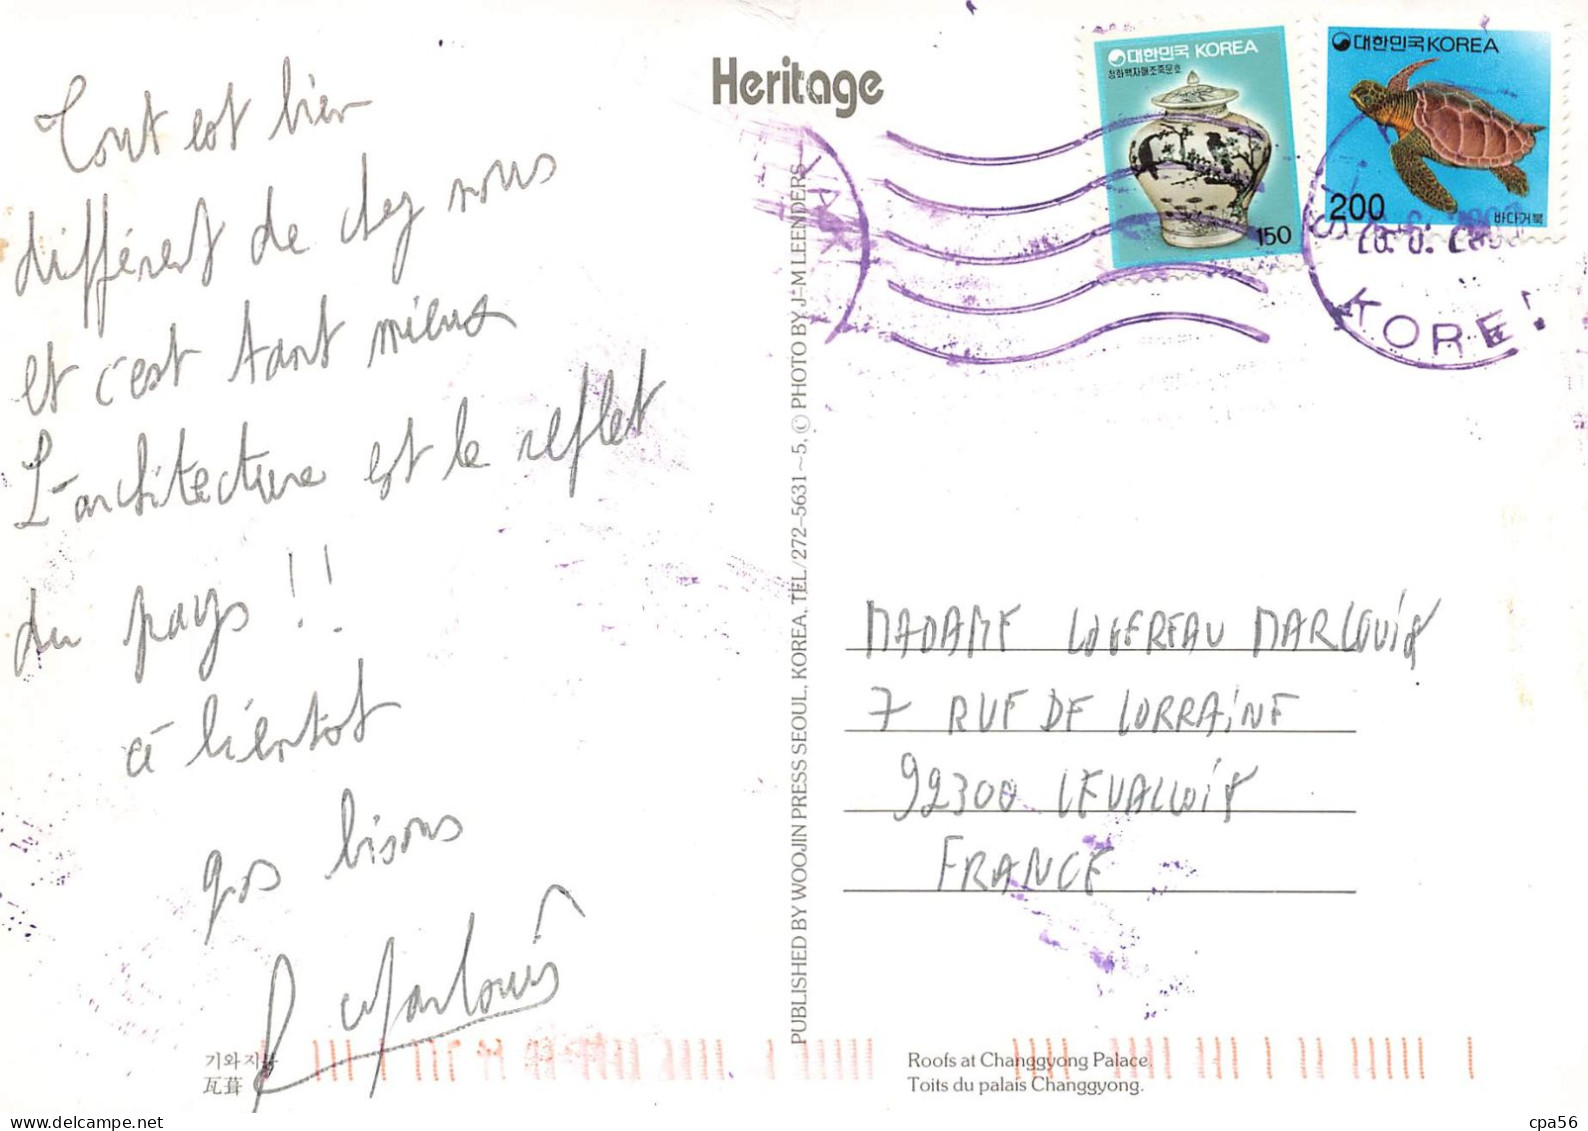 Tout est bien
différent de chez nous
et c'est tant mieux
L'architecture est le reflet
du pays !!
à bientot
gos bisous
Heritage
대한민국 KOREA
청화백자매조죽문호
150
대한민국 KOREA
200
바다거북
KORE
PUBLISHED BY WOOJIN PRESS SEOUL, KOREA, TEL/272-5631~5, © PHOTO BY J-M LEENDERS
MADAME MARLOUIS
7 RUE DE LORRAINE
92300 LEVALLOIS
FRANCE
기와지붕
瓦葺
Roofs at Changgyong Palace.
Toits du palais Changgyong.
cpa56